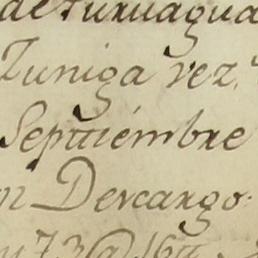 de Turuagua
Zuniga vez.
Septiembre
n Descargo.